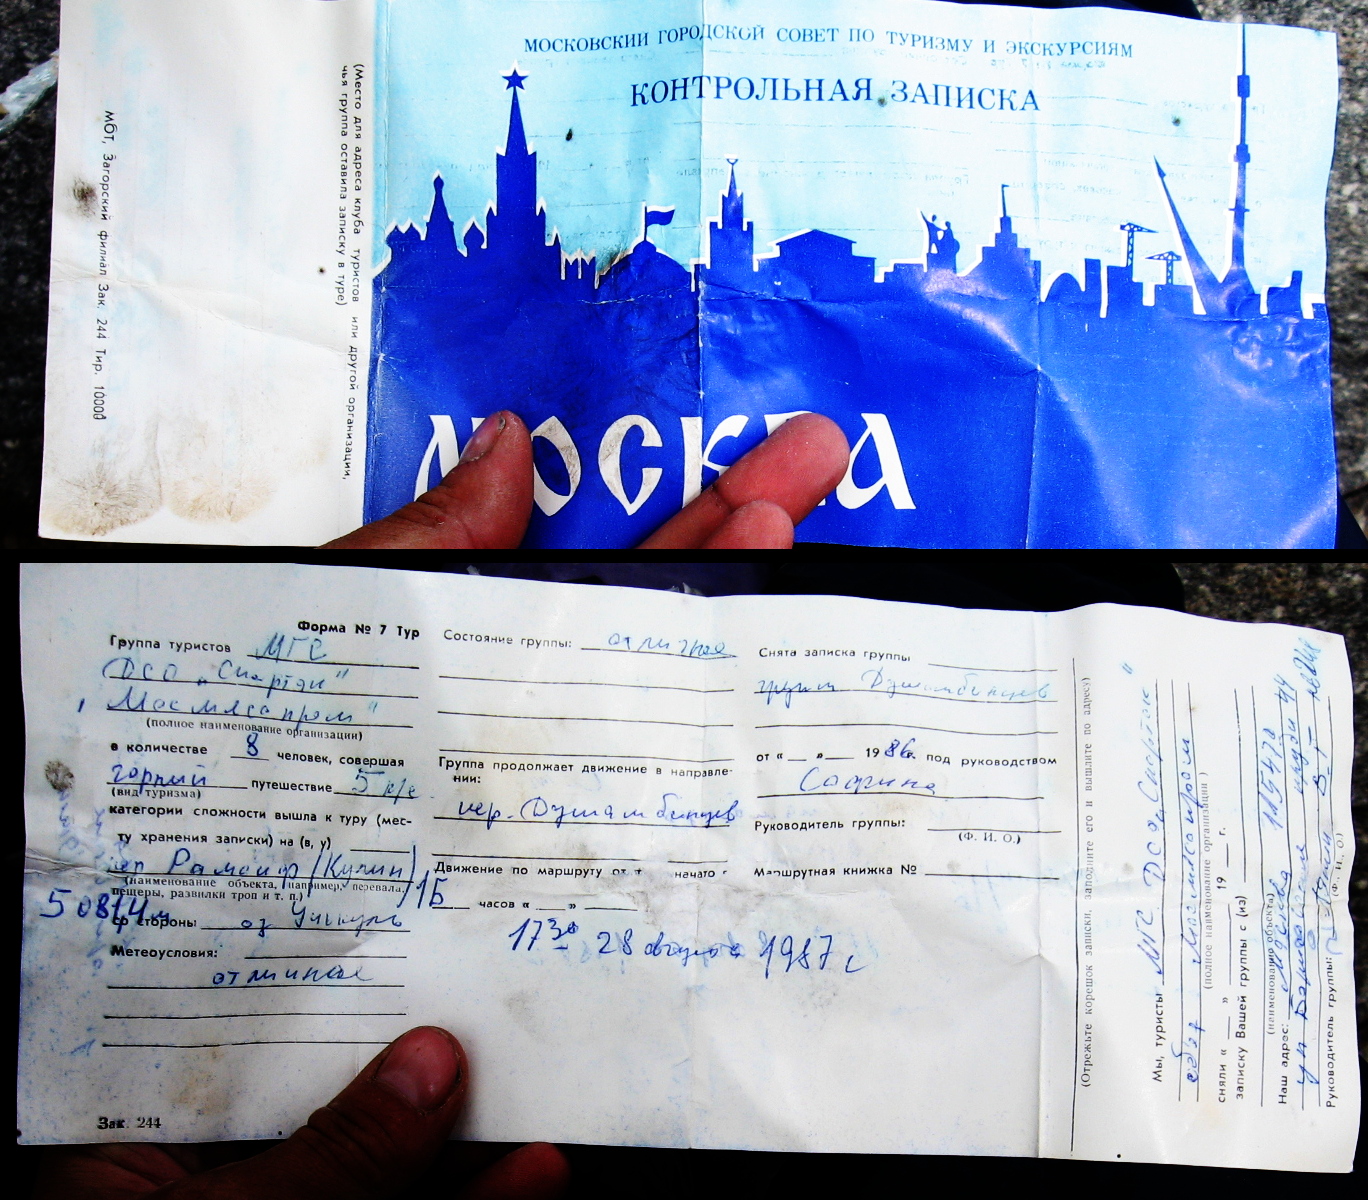 МОСКОВСКИЙ ГОРОДСКОЙ СОВЕТ ПО ТУРИЗМУ И ЭКСКУРСИЯМ
КОНТРОЛЬНАЯ ЗАПИСКА
МОСКВА
(Место для адреса клуба туристов или другой организации,
чья группа оставила записку в туре)
МОТ, Загорский филиал Зак. 244 Тир. 10000
Форма № 7 Тур
Группа туристов МГС
ДСО „Спартак"
Мосмясопром"
(полное наименование организации)
в количестве 8 человек, совершая
горный путешествие 5 к/с
(вид туризма)
категории сложности вышла к туру (мес-
ту хранения записки) на (в, у)
(наименование объекта, например, перевала,
пещеры, развилки троп и т. п.)
со стороны
Метеоусловия:
отличная
Зак. 244
Состояние группы: отличная
Группа продолжает движение в направле-
нии:
пер. Душанбинцев
Движение по маршруту начато
1Б
часов « »
17 30 28 августа 1987 г
Снята записка группы
групп Душанбинцев
от « » 1986г. под руководством
Сафина
Руководитель группы:
(Ф. И. О.)
Маршрутная книжка №
(Отрежьте корешок записки, заполните его и вышлите по адресу)
Мы, туристы МГС ДСО „Спартак"
Мосмясопром
(полное наименование организации)
сняли « » 19 г.
записку Вашей группы с (из)
(наименование объекта)
Наш адрес: Москва
Руководитель группы:
(Ф. И. О.)